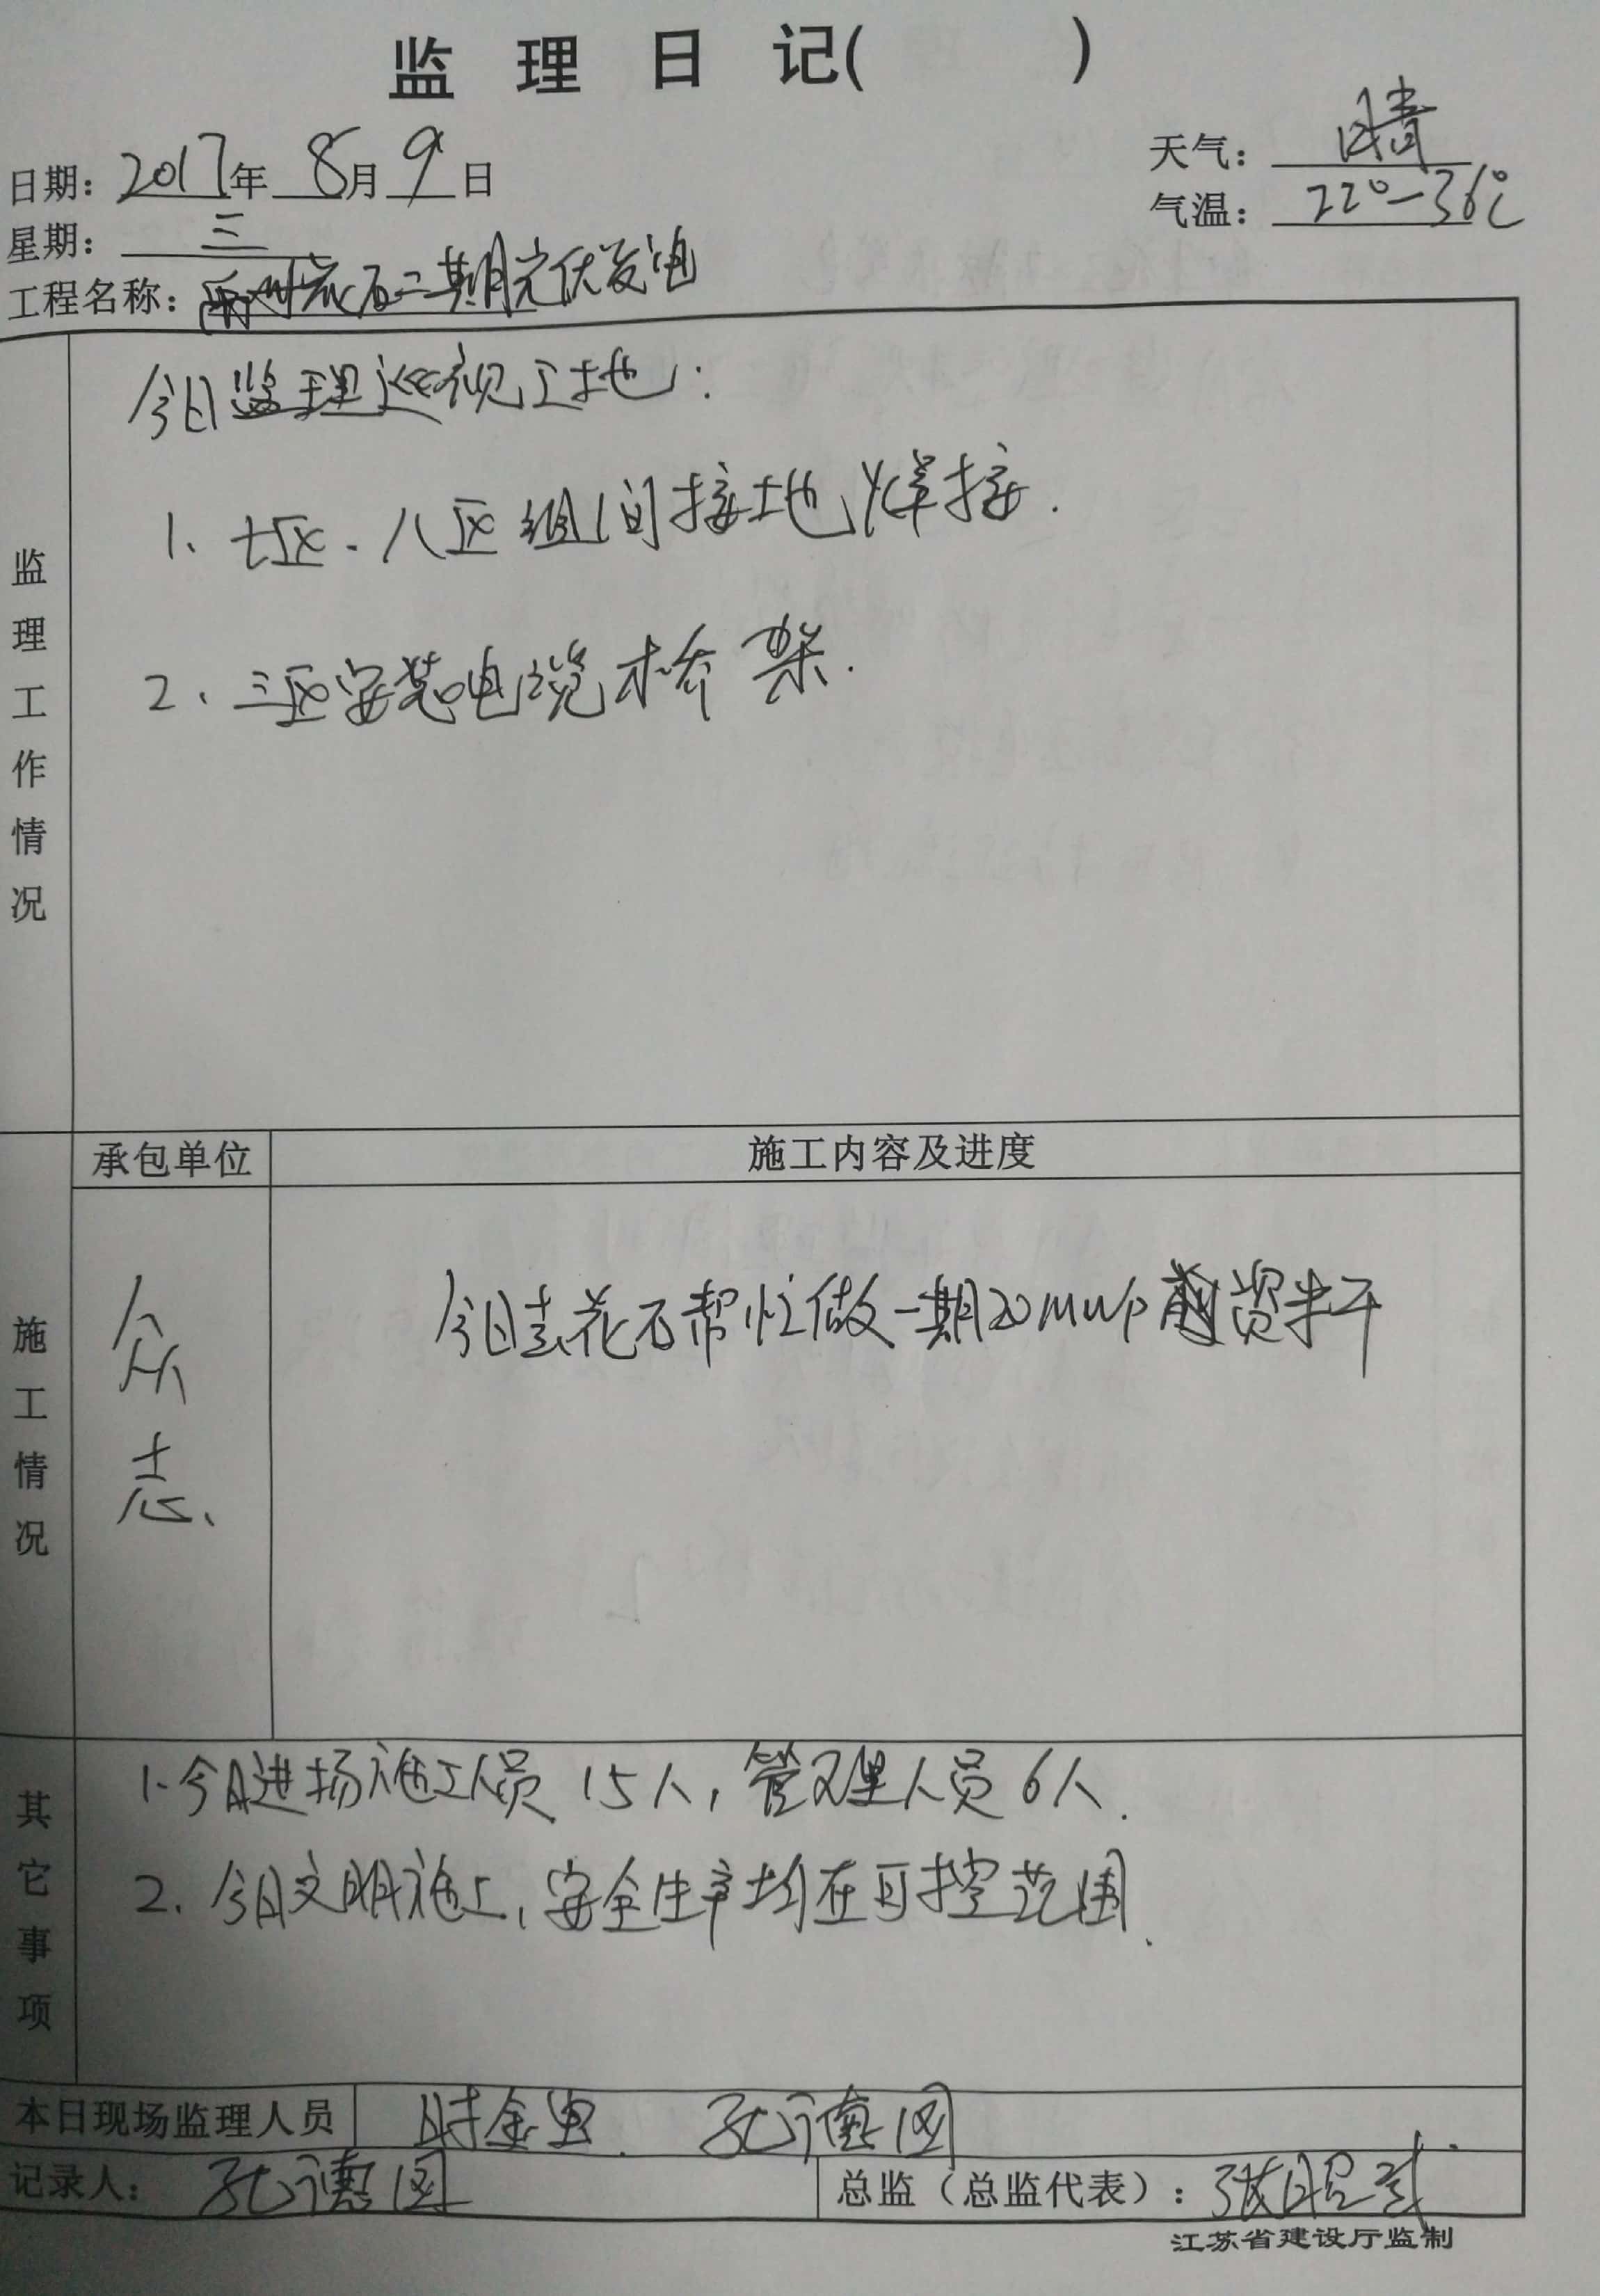 监理日记( )
日期: 2017年 8月 9日
天气: 晴
星期: 三
气温: 22°-36℃
工程名称: 禹州花石二期光伏发电
监理工作情况
今日监理巡视工地:
1、七区、八区组间接地焊接.
2、三区安装电缆桥架.
承包单位
施工内容及进度
施工情况
众志、
今日去花石帮忙做一期20MWp 资料
其它事项
1、今日进场施工人员15人,管理人员6人.
2、今日文明施工,安全生产均在可控范围、
本日现场监理人员
时金 、孔德图
记录人: 孔德图
总监(总监代表): 张昭
江苏省建设厅监制